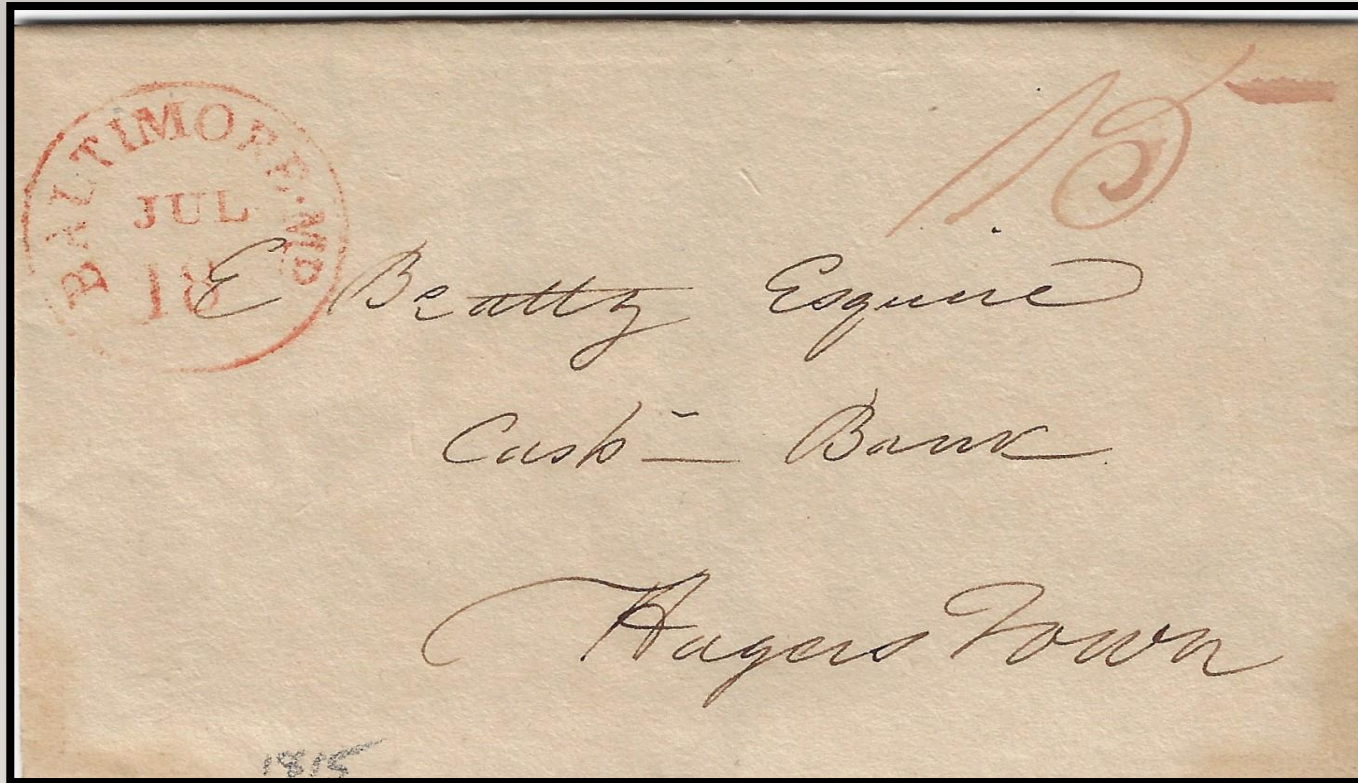 BALTIMORE. MD
JUL
18
15
E Beatty Esquire
Cashr Bank
Hagers Town
1815